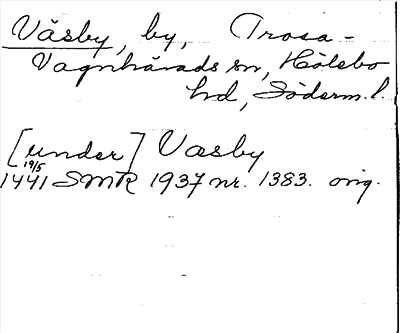 Väsby, by, Trosa-
Vagnhärads sn, Hölebo
hd, Söderm. l.
[under] Væsby
19/5
1441 SMR 1937 nr. 1383. orig.